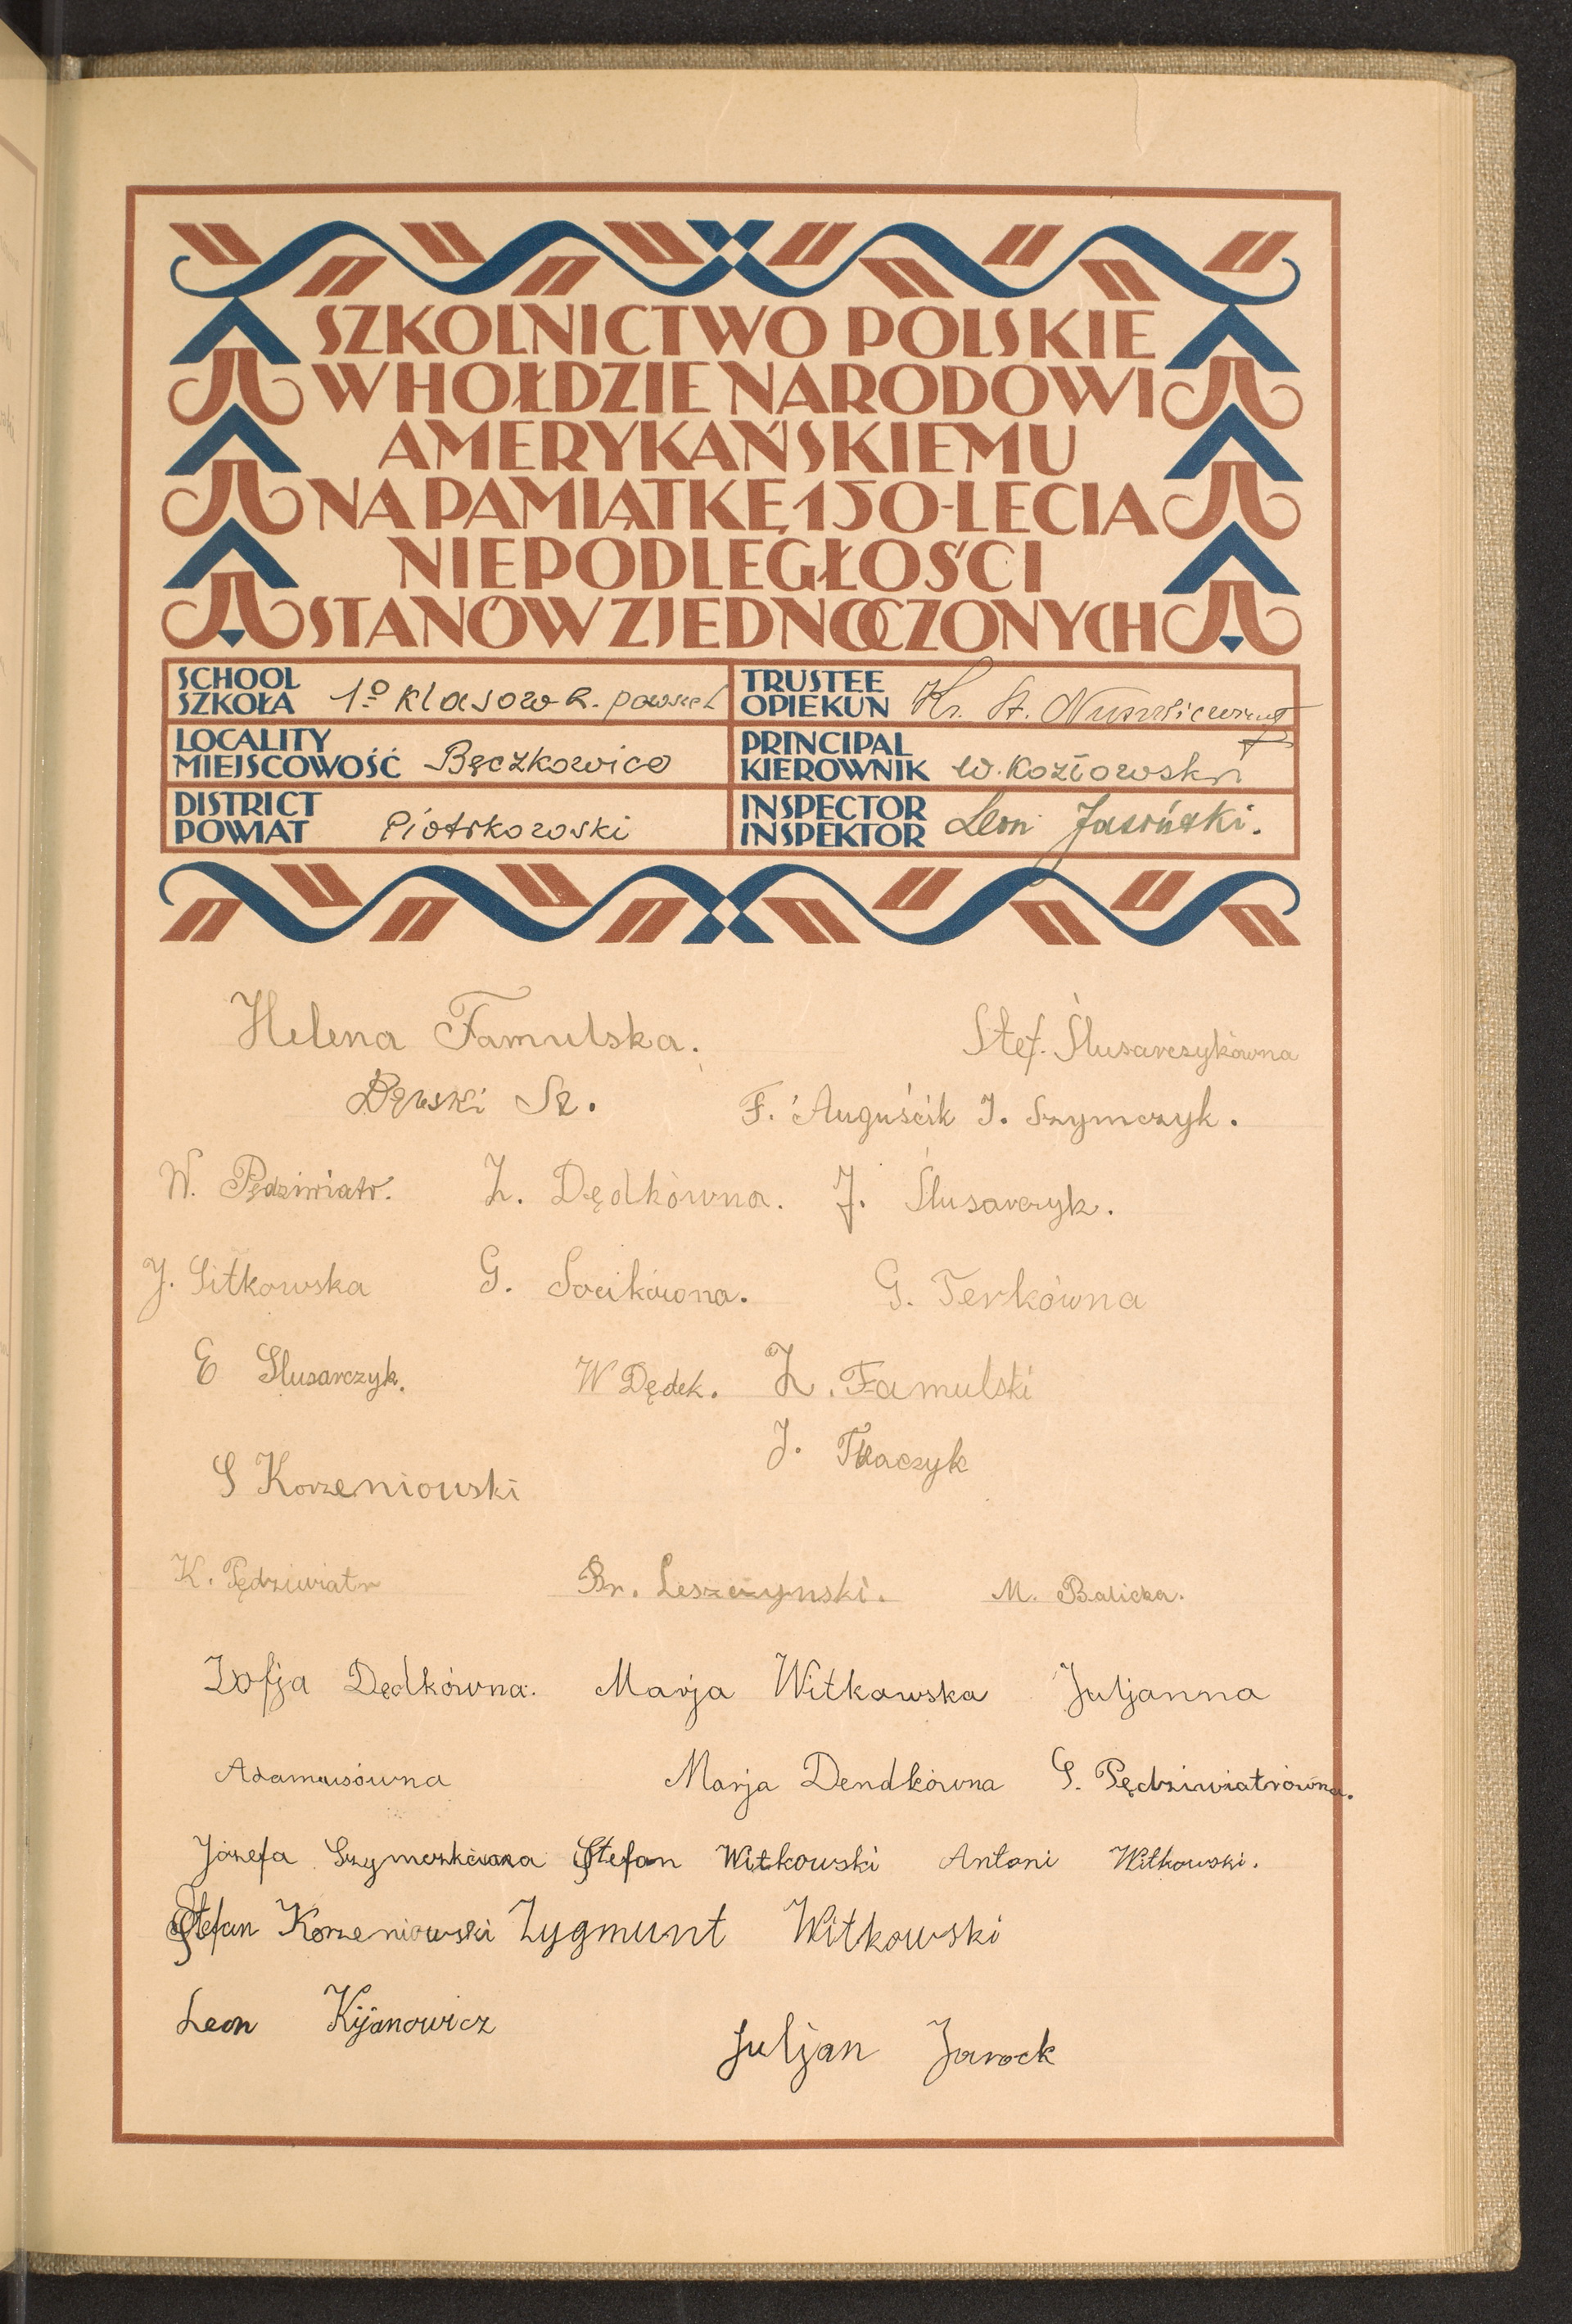 SZKOLNICTWO POLSKIE
W HOŁDZIE NARODOWI
AMERYKAŃSKIEMU
NA PAMIĄTKĘ 150-LECIA
NIEPODLEGŁOŚCI
STANÓW ZJEDNOCZONYCH
SCHOOL
SZKOŁA 1º klasowa. powszech
TRUSTEE
OPIEKUN Ks. St.
LOCALITY
MIEJSCOWOŚĆ Bęczkowice
PRINCIPAL
KIEROWNIK W. Kozłowski
DISTRICT
POWIAT Piotrkowski
INSPECTOR
INSPEKTOR Leon Jasiński.
Helena Famulska. Stef. Ślusarczykówna
F. Auguścik J. Szymczyk.
W. Pędziwiatr. Z. Dędkówna. J. Ślusarczyk.
J. Sitkowska G. Socikówna. G. Terkówna
E Slusarczyk. W Dędek. Z. Famulski
J. Tkaczyk
S Korzeniowski
K. Pędziwiatr Br. Leszczynski. M. Balicka.
Zofja Dędkówna. Marja Witkowska Juljanna
Adamusówna Marja Dendkówna S. Pędziwiatrówna.
Józefa Stefan Witkowski Antoni Witkowski.
Stefan Korzeniowski Zygmunt Witkowski
Leon Kijanowicz
Juljan Jarock